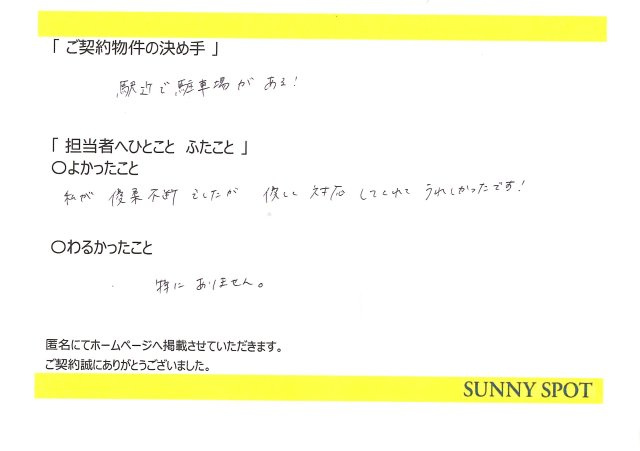 「 ご契約物件の決め手 」
駅近で駐車場がある!
「 担当者へひとこと ふたこと 」
○よかったこと
私が 優柔不断でしたが 優しく 対応 してくれて うれしかったです!
○わるかったこと
特に ありません。
匿名にてホームページへ掲載させていただきます。
ご契約誠にありがとうございました。
SUNNY SPOT